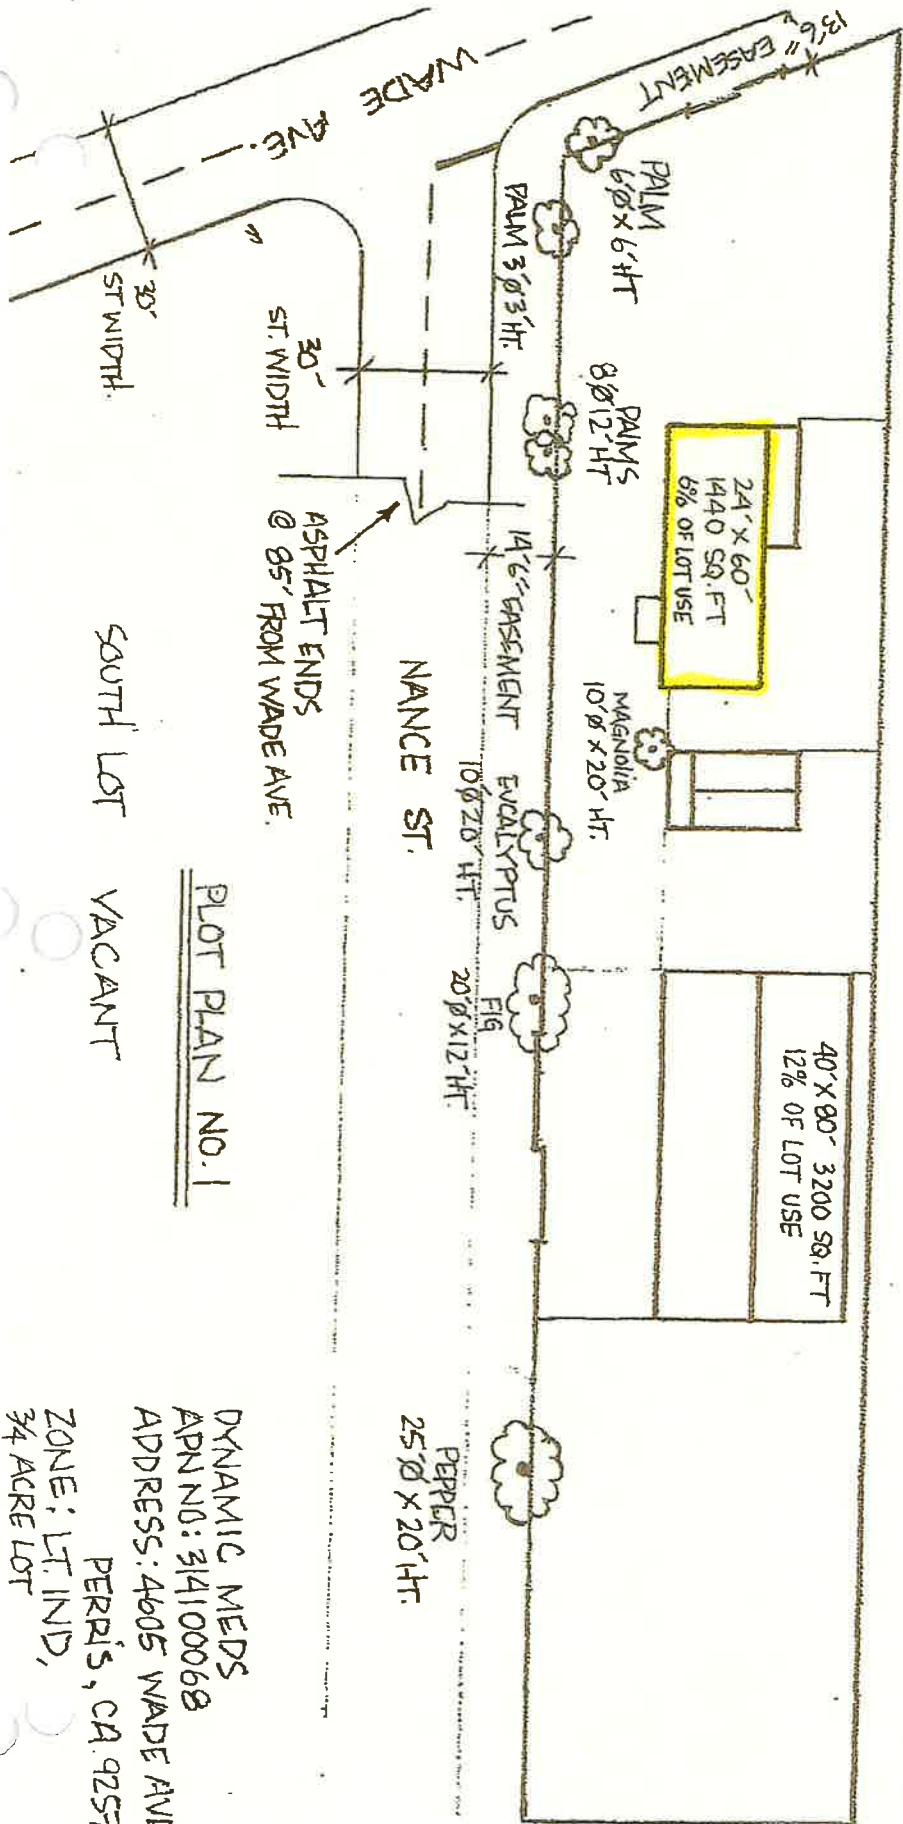 13'6" EASEMENT
WADE AVE.
30'
ST WIDTH
30'
ST. WIDTH
PALM
6'Ø X 6' HT
PALM 3'Ø 3' HT.
PALMS
8'Ø 12' HT
24' X 60'
1440 SQ. FT
6% OF LOT USE
14'6" EASEMENT
ASPHALT ENDS
@ 85' FROM WADE AVE.
NANCE ST.
MAGNOLIA
10'Ø X 20' HT.
EUCALYPTUS
10'Ø 20' HT.
FIG
20'Ø X 12' HT.
40' X 80' 3200 SQ. FT
12% OF LOT USE
PEPPER
25'Ø X 20' HT.
SOUTH LOT VACANT
PLOT PLAN NO. 1
DYNAMIC MEDS
APN NO: 314100068
ADDRESS: 4605 WADE AVE
PERRIS, CA. 9257
ZONE: LT. IND,
3/4 ACRE LOT